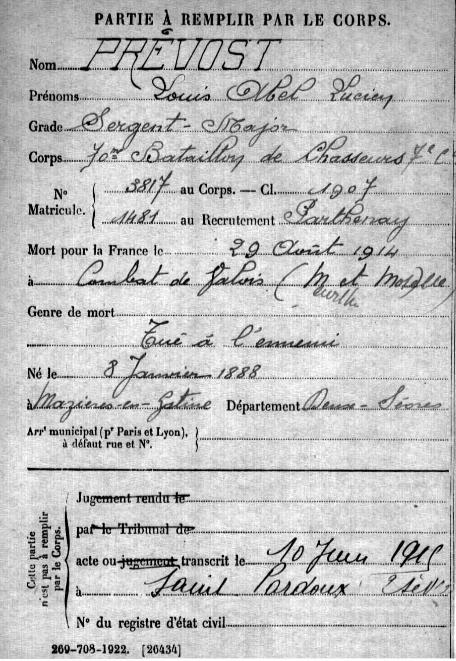 PARTIE À REMPLIR PAR LE CORPS.
Nom PRÉVOST
Prénoms Louis Abel Lucien
Grade Sergent-Major
Corps 70me Bataillon de Chasseurs 7e Cie
No Matricule. 3817 au Corps. — Cl. 1907
1481 au Recrutement Parthenay
Mort pour la France le 29 Août 1914
à Combat de (M et Moselle)
Meurthe
Genre de mort
Tué à l'ennemi
Né le 8 Janvier 1888
à Mazières-en-Gatine Département Deux-Sèvres
Arrt municipal (pr Paris et Lyon),
à défaut rue et No.
Cette partie
n'est pas à remplir
par le Corps.
Jugement rendu le
par le Tribunal de
acte ou jugement transcrit le 10 Juin 1915
à Saint Pardoux
No du registre d'état civil
269-708-1922. [26434]